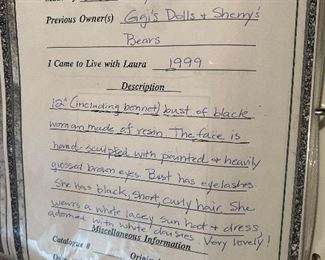 Previous Owner(s) Gigi's Dolls & Sherry's
Bears
I Came to Live with Laura 1999
Description
12" (including bonnet) bust of black
woman made of resin. The face is
hand-sculpted with painted & heavily
glossed brown eyes. Bust has eyelashes.
She has black, short, curly hair. She
wears a white lacey sun hat & dress,
adorned with white daisies. Very lovely!
Miscellaneous Information
Catalogue # Origin